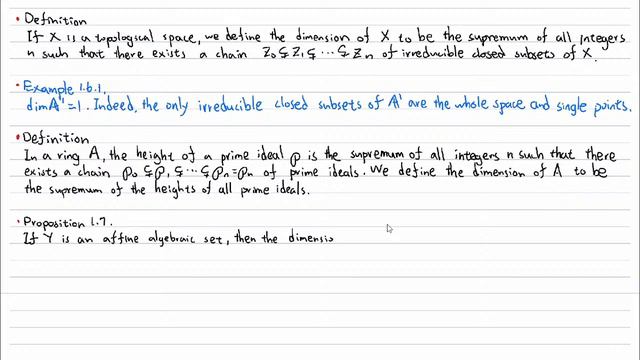 • Definition
If X is a topological space, we define the dimension of X to be the supremum of all integers
n such that there exists a chain Z₀ ⊊ Z₁ ⊊ ⋯ ⊊ Zₙ of irreducible closed subsets of X.
• Example 1.6.1.
dim A¹ = 1. Indeed, the only irreducible closed subsets of A¹ are the whole space and single points.
• Definition
In a ring A, the height of a prime ideal p is the supremum of all integers n such that there
exists a chain p₀ ⊊ p₁ ⊊ ⋯ ⊊ pₙ = pₙ of prime ideals. We define the dimension of A to be
the supremum of the heights of all prime ideals.
• Proposition 1.7.
If Y is an affine algebraic set, then the dimensio